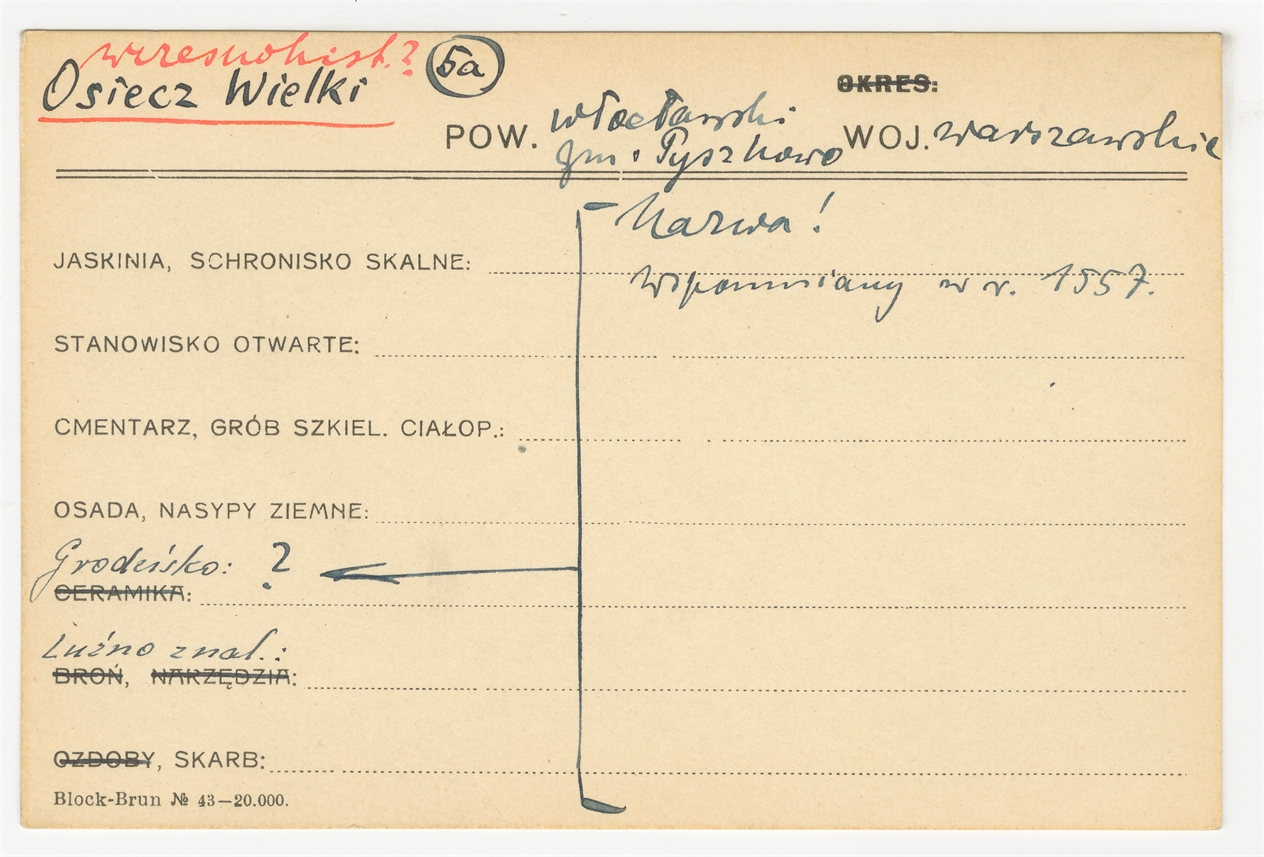 wczesnohist.?
Osiecz Wielki 5a
OKRES:
POW. włocławski WOJ. warszawskie
gm. Pyszkowo
Nazwa!
JASKINIA, SCHRONISKO SKALNE:
Wspomniany w r. 1557.
STANOWISKO OTWARTE:
CMENTARZ, GRÓB SZKIEL. CIAŁOP.:
OSADA, NASYPY ZIEMNE:
Grodzisko: ?
CERAMIKA:
Luźno znal.:
BROŃ, NARZĘDZIA:
OZDOBY, SKARB:
Block-Brun № 43—20.000.